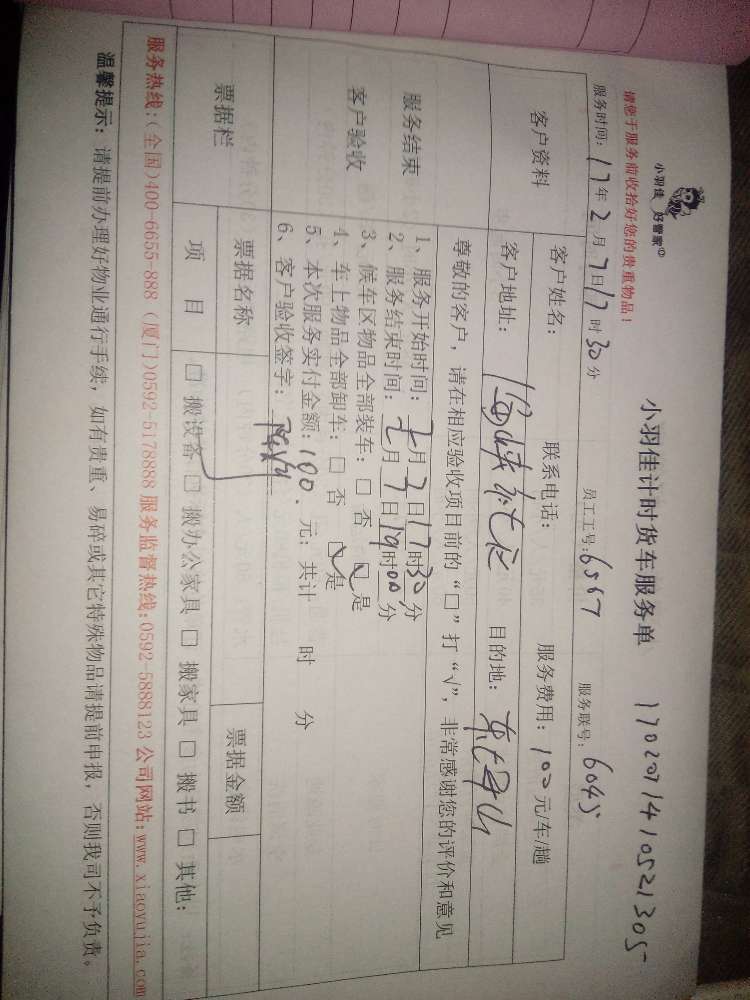 小羽佳 好管家
小羽佳计时货车服务单 1702071410521305
请您于服务前收拾好您的贵重物品！
服务时间：17年2月7日17时30分 员工工号：6567 服务联号：6045
客户资料
客户姓名： 联系电话： 服务费用：100元/车/趟
客户地址： 目的地：
服务结束
客户验收
尊敬的客户，请在相应验收项目前的“□”打“√”，非常感谢您的评价和意见
1、服务开始时间：2月7日17时30分
2、服务结束时间：2月7日19时00分
3、候车区物品全部装车：□ 否 ☑ 是
4、车上物品全部卸车：□ 否 ☑ 是
5、本次服务实付金额：100.元；共计 时 分
6、客户验收签字：
票据栏
票据名称 票据金额
项 目 □ 搬设备 □ 搬办公家具 □ 搬家具 □ 搬书 □ 其他：
服务热线：(全国)400-6655-888 (厦门)0592-5178888 服务监督热线：0592-5888123 公司网站：www.xiaoyujia.com
温馨提示：请提前办理好物业通行手续，如有贵重、易碎或其它特殊物品请提前申报，否则我司不予负责。